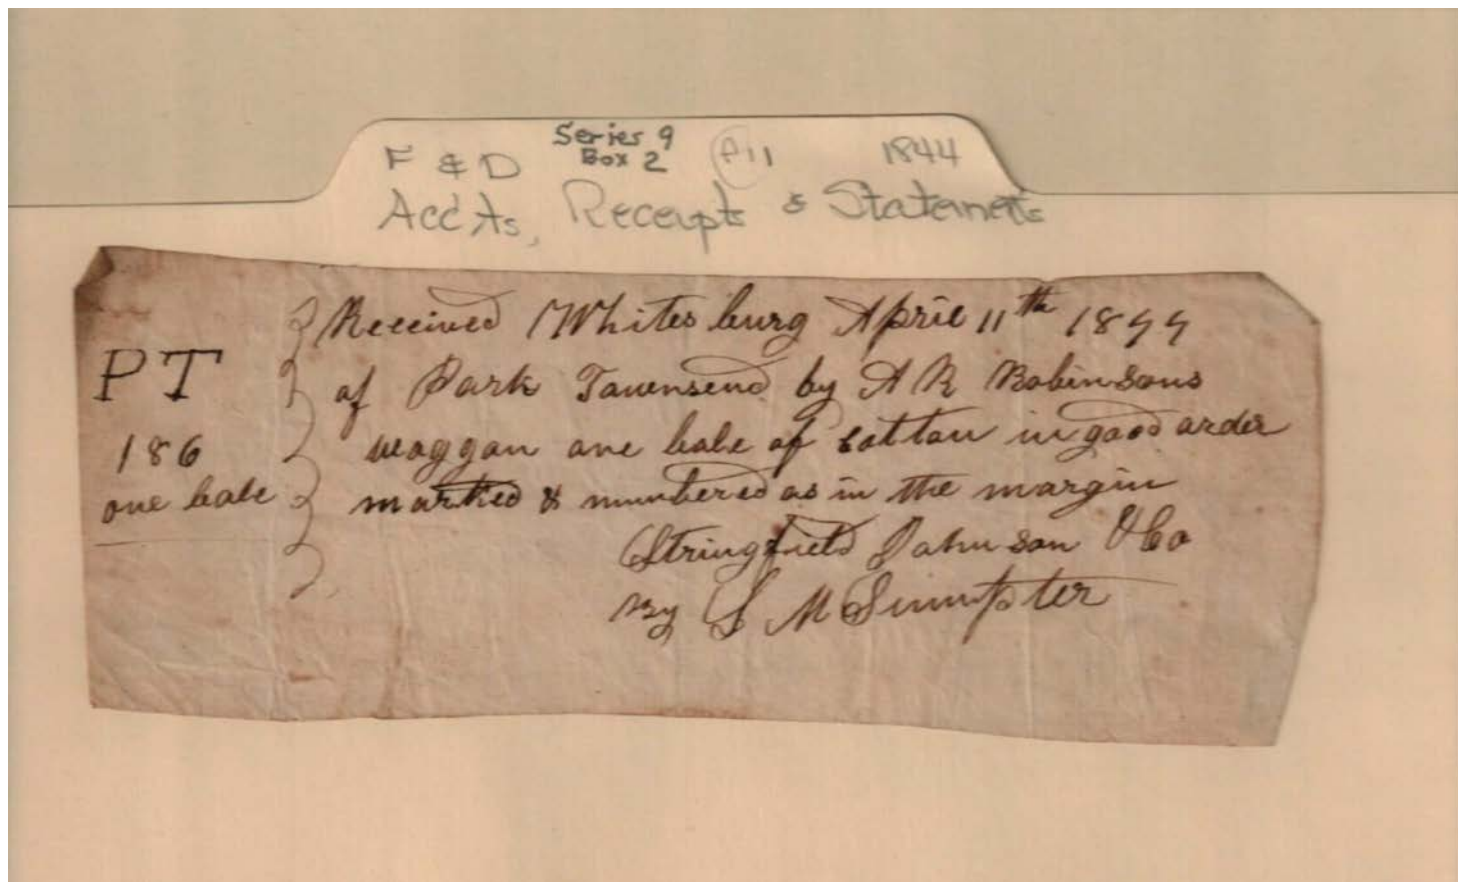 Series 9
F & D Box 2 P11 1844
Acc'ts, Receipts & Statements
Received Whitesburg April 11th 1844
PT of Park Townsend by A R Robinsons
186 waggon one bale of cotton in good order
one bale marked & numbered as in the margin
Stringfield Johnson & Co
By S M Sumpter